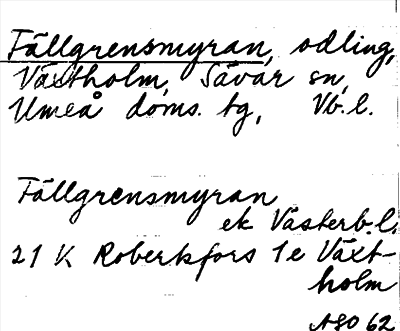 Fällgrensmyran, odling,
Växtholm, Sävar sn,
Umeå doms. tg, Vb.l.
Fällgrensmyran
ek Västerb.l.
21 K Robertsfors 1e Växt-
holm
ASO 62